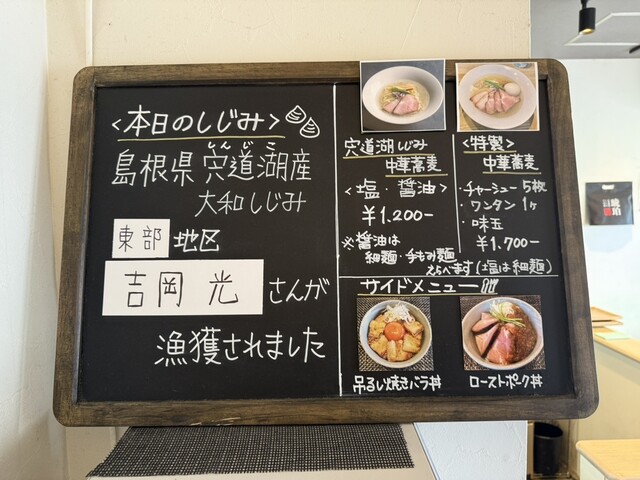 <本日のしじみ>
しんじこ
島根県 宍道湖産
大和しじみ
東部 地区
吉岡 光 さんが
漁獲されました
宍道湖しじみ
中華蕎麦
<塩・醤油>
¥1.200-
※醤油は
細麺・手もみ麺
えらべます(塩は細麺)
<特製>
中華蕎麦
・チャーシュー5枚
・ワンタン1ヶ
・味玉
¥1.700-
サイドメニュー
吊るし焼きバラ丼
ローストポーク丼